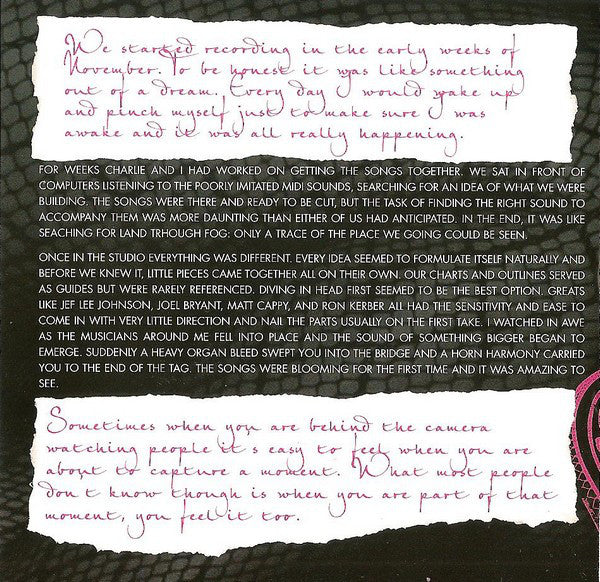 We started recording in the early weeks of
November. To be honest it was like something
out of a dream. Every day I would wake up
and pinch myself just to make sure I was
awake and it was all really happening.
FOR WEEKS CHARLIE AND I HAD WORKED ON GETTING THE SONGS TOGETHER. WE SAT IN FRONT OF
COMPUTERS LISTENING TO THE POORLY IMITATED MIDI SOUNDS, SEARCHING FOR AN IDEA OF WHAT WE WERE
BUILDING. THE SONGS WERE THERE AND READY TO BE CUT, BUT THE TASK OF FINDING THE RIGHT SOUND TO
ACCOMPANY THEM WAS MORE DAUNTING THAN EITHER OF US HAD ANTICIPATED. IN THE END, IT WAS LIKE
SEACHING FOR LAND TRHOUGH FOG: ONLY A TRACE OF THE PLACE WE GOING COULD BE SEEN.
ONCE IN THE STUDIO EVERYTHING WAS DIFFERENT. EVERY IDEA SEEMED TO FORMULATE ITSELF NATURALLY AND
BEFORE WE KNEW IT, LITTLE PIECES CAME TOGETHER ALL ON THEIR OWN. OUR CHARTS AND OUTLINES SERVED
AS GUIDES BUT WERE RARELY REFERENCED. DIVING IN HEAD FIRST SEEMED TO BE THE BEST OPTION. GREATS
LIKE JEF LEE JOHNSON, JOEL BRYANT, MATT CAPPY, AND RON KERBER ALL HAD THE SENSITIVITY AND EASE TO
COME IN WITH VERY LITTLE DIRECTION AND NAIL THE PARTS USUALLY ON THE FIRST TAKE. I WATCHED IN AWE
AS THE MUSICIANS AROUND ME FELL INTO PLACE AND THE SOUND OF SOMETHING BIGGER BEGAN TO
EMERGE. SUDDENLY A HEAVY ORGAN BLEED SWEPT YOU INTO THE BRIDGE AND A HORN HARMONY CARRIED
YOU TO THE END OF THE TAG. THE SONGS WERE BLOOMING FOR THE FIRST TIME AND IT WAS AMAZING TO
SEE.
Sometimes when you are behind the camera
watching people it's easy to feel when you are
about to capture a moment. What most people
don't know though is when you are part of that
moment, you feel it too.